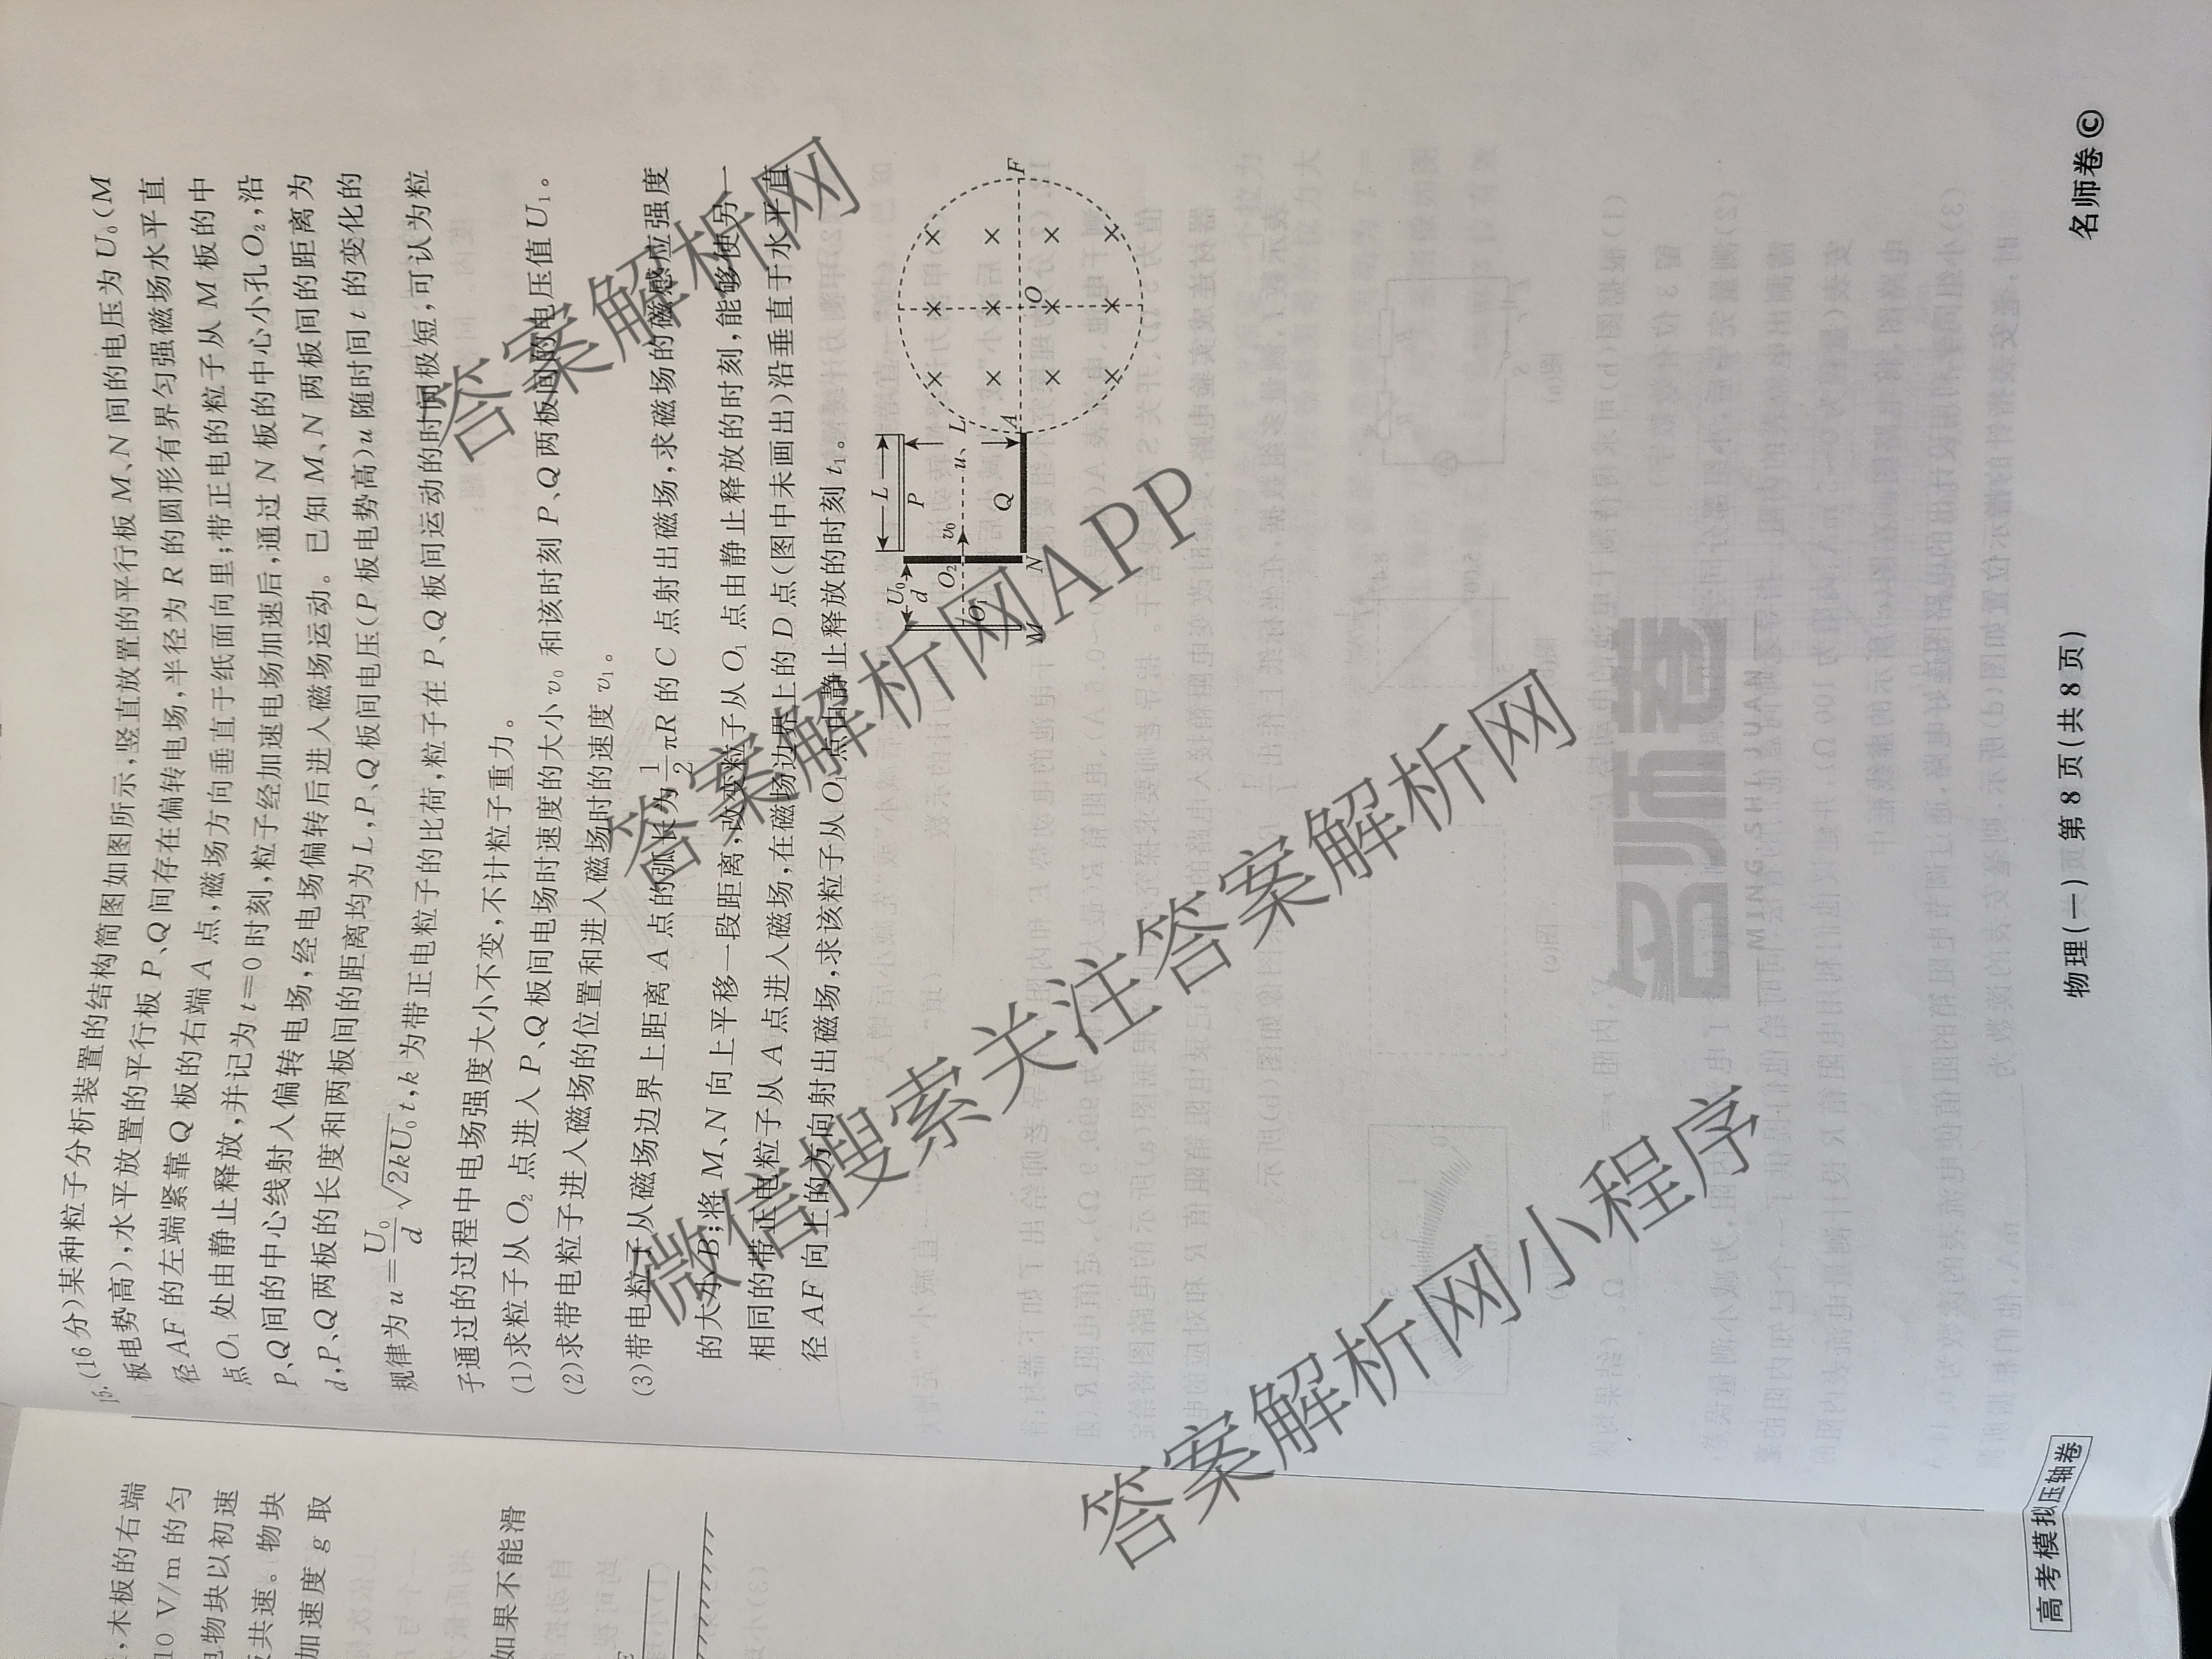 16.(16分)某种粒子分析装置的结构简图如图所示,竖直放置的平行板M、N间的电压为U₀(M
板电势高),水平放置的平行板P、Q间存在偏转电场,半径为R的圆形有界匀强磁场水平直
径AF的左端紧靠Q板的右端A点,磁场方向垂直于纸面向里;带正电的粒子从M板的中
点O₁处由静止释放,并记为t=0时刻,粒子经加速电场加速后,通过N板的中心小孔O₂,沿
P、Q间的中心线射入偏转电场,经电场偏转后进入磁场运动。已知M、N两板间的距离为
d,P、Q两板的长度和两板间的距离均为L,P、Q板间电压(P板电势高)u随时间t的变化的
规律为u=U₀/d √2kU₀ t,k为带正电粒子的比荷,粒子在P、Q板间运动的时间极短,可认为粒
子通过的过程中电场强度大小不变,不计粒子重力。
(1)求粒子从O₂点进入P、Q板间电场时速度的大小v₀和该时刻P、Q两板间的电压值U₁。
(2)求带电粒子进入磁场的位置和进入磁场时的速度v₁。
(3)带电粒子从磁场边界上距离A点的弧长为1/2πR的C点射出磁场,求磁场的磁感应强度
的大小B;将M、N向上平移一段距离,改变粒子从O₁点由静止释放的时刻,能够使另一
相同的带正电粒子从A点进入磁场,在磁场边界上的D点(图中未画出)沿垂直于水平直
径AF向上的方向射出磁场,求该粒子从O₁点由静止释放的时刻t₁。
U₀
d
L
P
O₁
O₂
v₀
u、L
M
N
Q
A
O
F
答案解析网
答案解析网APP
微信搜索关注答案解析网
答案解析网小程序
名师卷
MING SHI JUAN
,木板的右端
10 V/m的匀
电物块以初速
板共速。物块
加速度g取
如果不能滑
高考模拟压轴卷
物理(一) 第8页(共8页)
名师卷©